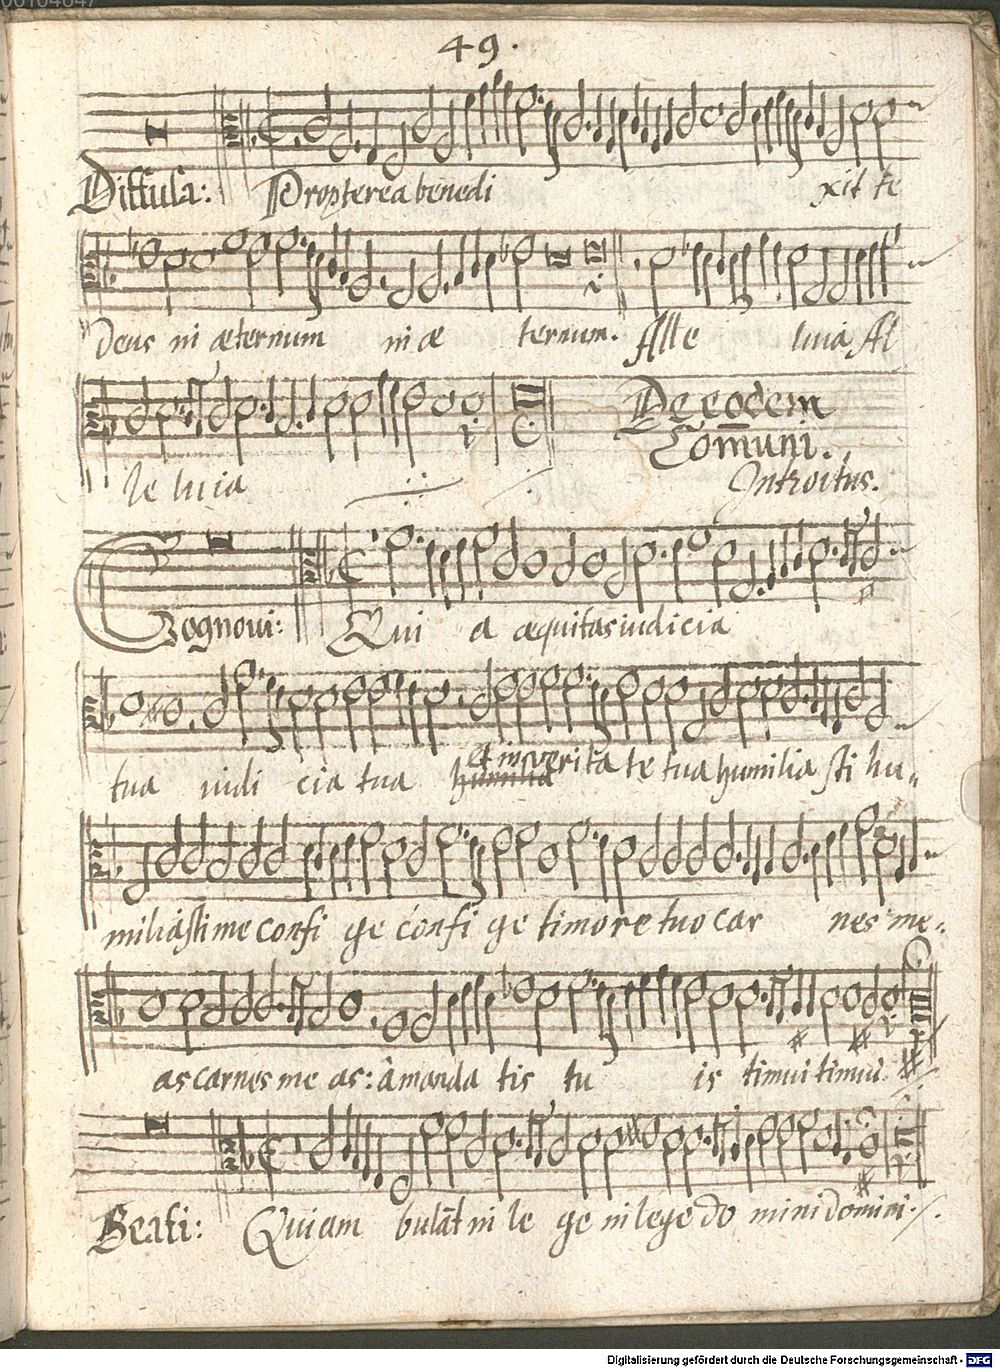 00104847
49.
Diffusa: Propterea benedi xit te
Deus in æternum in æ ternum. Alle luia Al
le luia
De eodem
Com̄uni.
Introitus.
Cognovi: Qui a æquitas iudicia
tua iudi cia tua et in verita te tua humilia sti hu„
miliasti me confi ge confi ge timore tuo car nes me„
as carnes me as: à manda tis tu is timui timui.
Beati: Qui am bulāt in le ge in lege do mini domini.
Digitalisierung gefördert durch die Deutsche Forschungsgemeinschaft - DFG